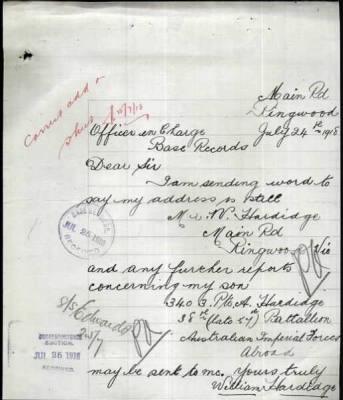 Correct add o
Main Rd
Kingwood
July 24th 1918
Officer in Charge
Base Records
Dear Sir
I am sending word to
say my address is still
Mr W. Hardidge
Main Rd
Kingwood Vic
and any further reports
concerning my son
3403 Pte A. Hardidge
38th (late 57th) Battalion
Australian Imperial Forces
Abroad
may be sent to me. Yours truly
William Hardidge
BASE RECORDS
JUL 25 1918
RECEIVED
25/7
JUL 26 1918
RECEIVED